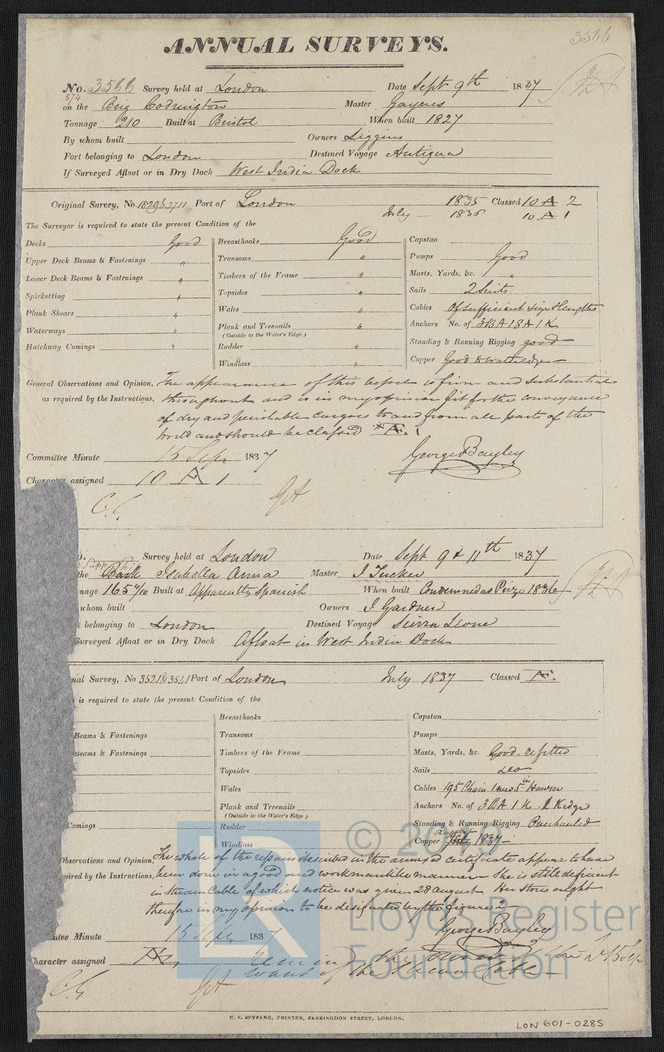 3566
ANNUAL SURVEYS.
No. 3566 Survey held at London Date Sept 9th 1837
574
on the Brig Codrington Master Gaynes
Tonnage 210 Built at Bristol When built 1827
By whom built Owners Liggins
Port belonging to London Destined Voyage Antigua
If Surveyed Afloat or in Dry Dock West India Dock
Original Survey, No. Port of London 1835 Classed 10 A 2
July 1836 10 A 1
The Surveyor is required to state the present Condition of the
Decks Good Breasthooks Good Capstan
Upper Deck Beams & Fastenings " Transoms " Pumps Good
Lower Deck Beams & Fastenings " Timbers of the Frame " Masts, Yards, &c. "
Spirketting " Topsides " Sails 2 Suits
Plank Shears " Wales " Cables Of sufficient size & lengths
Waterways " Plank and Treenails " Anchors No. of 3 B A 1 S A 1 K
(Outside to the Water's Edge.)
Hatchway Comings " Rudder " Standing & Running Rigging good
Windlass " Copper Good to waters edge
General Observations and Opinion, The appearance of this vessel is firm and substantial
as required by the Instructions, throughout and is in my opinion fit for the conveyance
of dry and perishable cargoes to and from all parts of the
World and should be classed A 1
Committee Minute 15 Sep 1837 George Bayley
Character assigned 10 A 1
Survey held at London Date Sept 9 & 11th 1837
the Bark Isabella Anna Master J Tucker
nage 165 Built at Apparently Spanish When built Condemned as Prize 1836
whom built Owners J. Gardner
belonging to London Destined Voyage Sierra Leone
Surveyed Afloat or in Dry Dock Afloat in West India Dock
nal Survey, No 3521 & 3541 Port of London July 1837 Classed Æ.
is required to state the present Condition of the
Breasthooks Capstan
Beams & Fastenings Transoms Pumps
Beams & Fastenings Timbers of the Frame Masts, Yards, &c. Good-refitted
Topsides Sails
Wales Cables 195 Chain 1 new 5 in Hawser
Plank and Treenails Anchors No. of 3 B A 1 K 1 Kedge
(Outside to the Water's Edge)
Comings Rudder Standing & Running Rigging Overhauled
Windlass Copper July 1837
Observations and Opinion, The whole of the repairs described in the annexed certificate appear to have
uired by the Instructions, been done in a good and workmanlike manner She is still deficient
in stream Cable of which notice was given 28 August Her stores ought
therefore in my opinion to be designated by the figure 2
George Bayley
ttee Minute 15 Sep 1837
Character assigned Æ
want of the Stream Cable
© 2019
LR
Lloyd's Register
Foundation
C. F. SEYFANG, PRINTER, FARRINGDON STREET, LONDON.
LON 601-0285